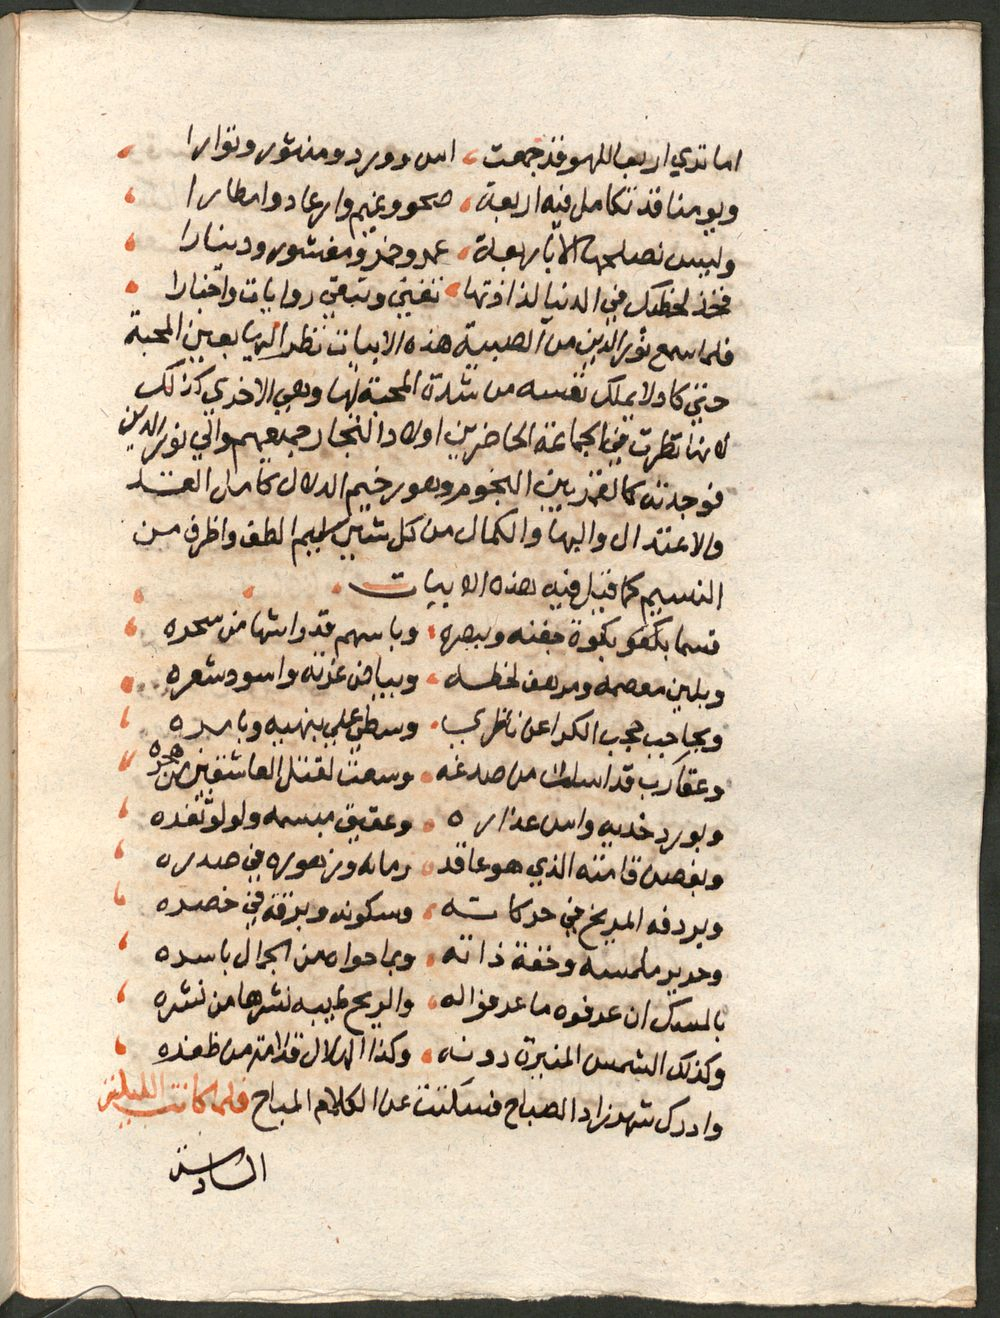 اما تري اربع اللهو قد جمعت ، اس وورد ومنثور ونوارا ،
ويومنا قد تكامل فيه اربعة ، صحو وغيم وارعاد وامطارا ،
وليس نصلحها الا باربعة ، عود وخمر ومعشور ودينارا ،
فخذ لحظك في الدنيا لذاذتها ، تفني وتبقي روايات واخبارا ،
فلما سمع نور الدين من الصبية هذه الابيات نظر اليها بعين المحبة
حتي كاد لا يملك نفسه من شدة المحبة لها وهي الاخري كذلك
لانها نظرت في الجماعة الحاضرين اولاد التجار جميعهم والي نور الدين
فوجدته كالقمر بين النجوم وهو رخيم الدلال كامل القد
والاعتدال والبها والكمال من كل شئ سليم الطف واظرف من
النسيم كما قيل فيه هذه الابيات
قسما بكفو بكوة جفنه وبصره ، وباسهم قد راشها من سحره ،
وبلين معصمه ومرهف لحظه ، وبياض غرته واسود شعره ،
وبحاجب حجب الكرا عن ناظري ، وسطي علي بنهيه وبامره ،
وعقارب قد اسلت من صدغه ، وسعت لقتل العاشقين من هجره ،
وبورد خديه واس عذاره ، وعقيق مبسمه ولولو ثغره ،
وبغصن قامته الذي هو عاقد ، رمانه وزهوره في صدره ،
وبردفه المريخ في حركاته ، وسكونه وبرقة في خصره ،
وحرير ملمسه وخفة ذاته ، وبما حواه من الجمال باسره ،
بالمسك ان عرفوه ما عرفوا له ، والريح طيبه نشرها من نشره ،
وكذلك الشمس المنيرة دونه ، وكذا الهلال قلامة من ظفره ،
وادرك شهرزاد الصباح فسكتت عن الكلام المباح فلما كانت الليلة
السادسة